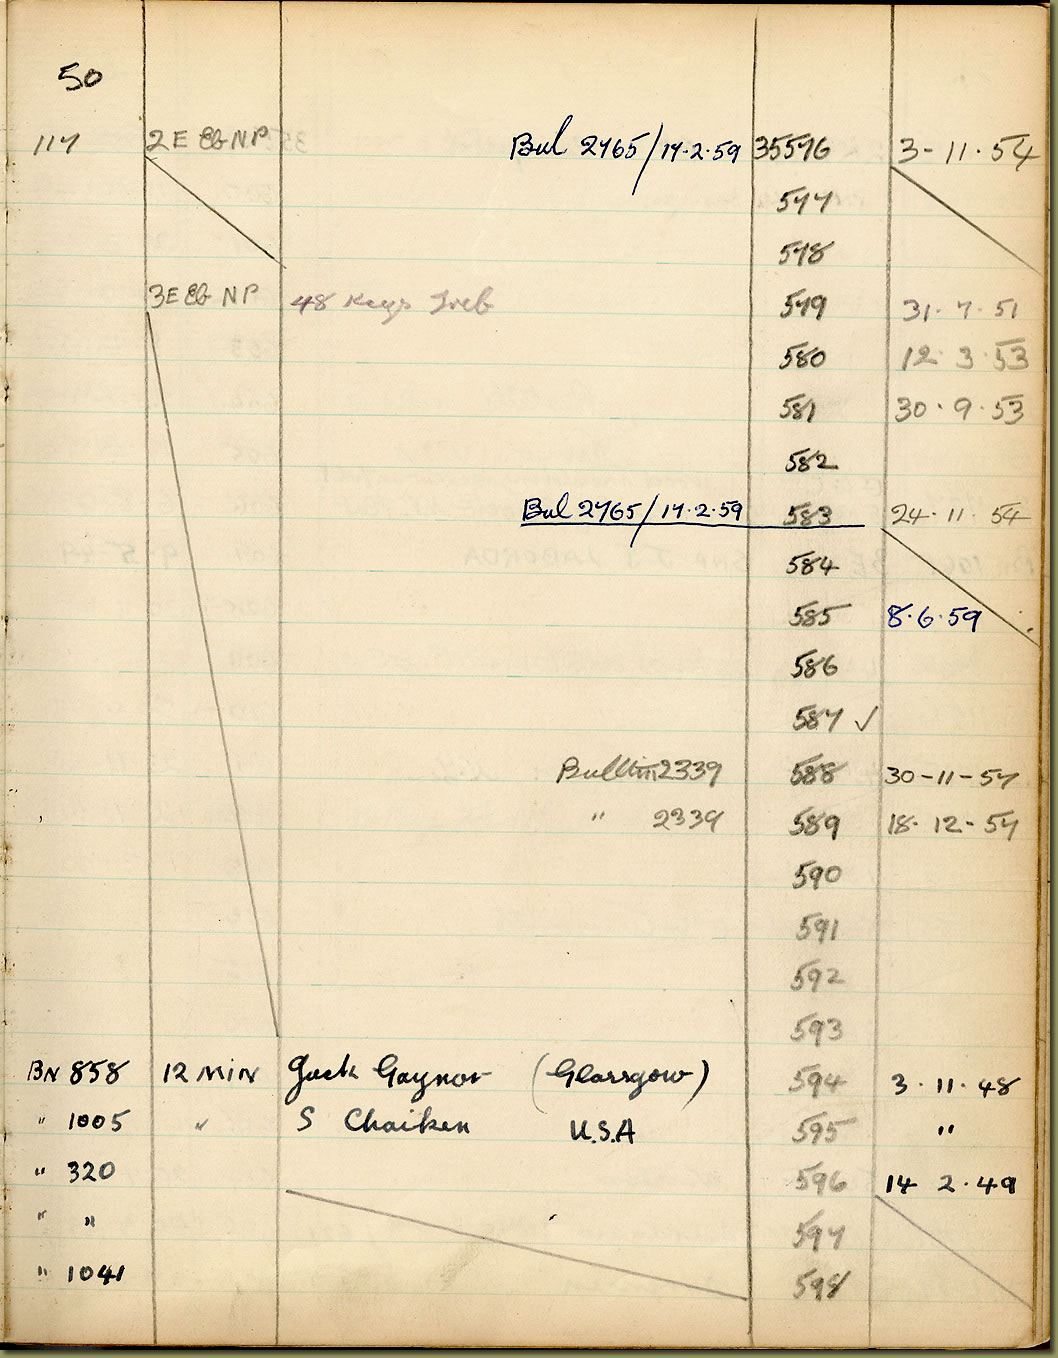 50
117 2E EG NP Bul 2765/17.2.59 35576 3-11.54
577
578
3E EG NP 48 Keys Treb 579 31.7.51
580 12.3.53
581 30.9.53
582
Bul 2765/17.2.59 583 24.11.54
584
585 8.6.59
586
587 ✓
2339 588 30-11-57
" 2339 589 18.12-57
590
591
592
593
BN 858 12 MIN Jack Gaynor (Glassgow) 594 3.11.48
" 1005 " S Chaiken U.S.A 595 "
" 320 596 14 2.49
" " 597
" 1041 598